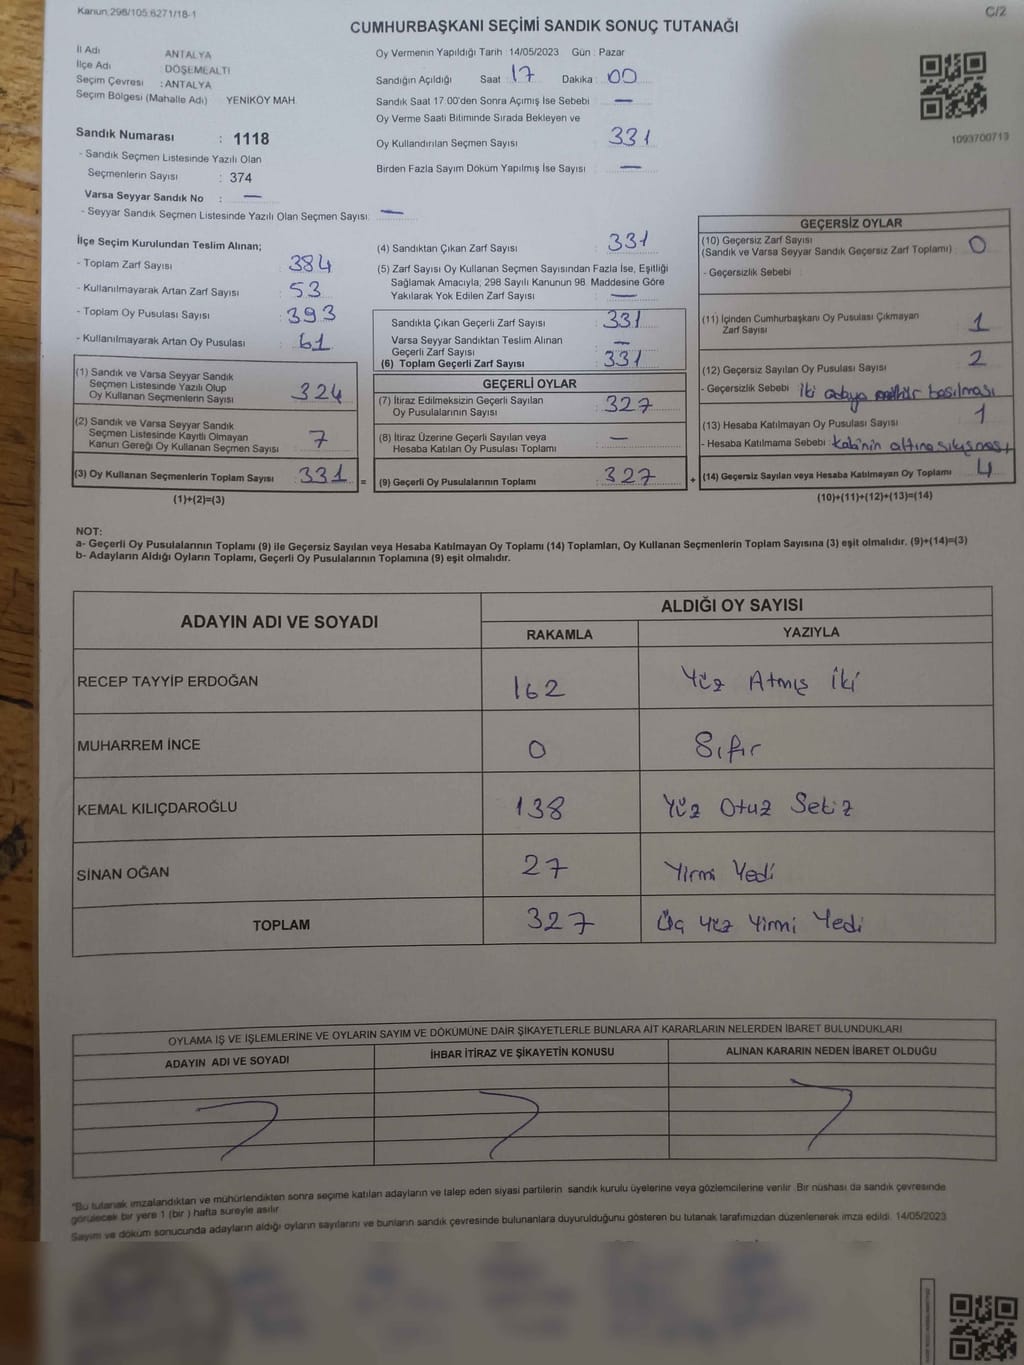 Kanun:298/105.6271/18-1
C/2
CUMHURBAŞKANI SEÇİMİ SANDIK SONUÇ TUTANAĞI
İl Adı ANTALYA
İlçe Adı : DÖŞEMEALTI
Seçim Çevresi : ANTALYA
Seçim Bölgesi (Mahalle Adı) YENİKÖY MAH.
Sandık Numarası : 1118
- Sandık Seçmen Listesinde Yazılı Olan
Seçmenlerin Sayısı : 374
Varsa Seyyar Sandık No : —
- Seyyar Sandık Seçmen Listesinde Yazılı Olan Seçmen Sayısı: —
Oy Vermenin Yapıldığı Tarih : 14/05/2023 Gün : Pazar
Sandığın Açıldığı Saat : 17 Dakika : 00
Sandık Saat 17:00'den Sonra Açımış İse Sebebi : —
Oy Verme Saati Bitiminde Sırada Bekleyen ve
Oy Kullandırılan Seçmen Sayısı : 331
Birden Fazla Sayım Döküm Yapılmış İse Sayısı : —
1093700713
İlçe Seçim Kurulundan Teslim Alınan;
- Toplam Zarf Sayısı : 384
- Kullanılmayarak Artan Zarf Sayısı : 53
- Toplam Oy Pusulası Sayısı : 393
- Kullanılmayarak Artan Oy Pusulası : 61
(1) Sandık ve Varsa Seyyar Sandık
Seçmen Listesinde Yazılı Olup
Oy Kullanan Seçmenlerin Sayısı : 324
(2) Sandık ve Varsa Seyyar Sandık
Seçmen Listesinde Kayıtlı Olmayan
Kanun Gereği Oy Kullanan Seçmen Sayısı : 7
(3) Oy Kullanan Seçmenlerin Toplam Sayısı : 331 =
(1)+(2)=(3)
(4) Sandıktan Çıkan Zarf Sayısı : 331
(5) Zarf Sayısı Oy Kullanan Seçmen Sayısından Fazla İse, Eşitliği
Sağlamak Amacıyla, 298 Sayılı Kanunun 98. Maddesine Göre
Yakılarak Yok Edilen Zarf Sayısı : —
Sandıkta Çıkan Geçerli Zarf Sayısı : 331
Varsa Seyyar Sandıktan Teslim Alınan
Geçerli Zarf Sayısı : —
(6) Toplam Geçerli Zarf Sayısı : 331
GEÇERLİ OYLAR
(7) İtiraz Edilmeksizin Geçerli Sayılan
Oy Pusulalarının Sayısı : 327
(8) İtiraz Üzerine Geçerli Sayılan veya
Hesaba Katılan Oy Pusulası Toplamı : —
(9) Geçerli Oy Pusulalarının Toplamı : 327 +
GEÇERSİZ OYLAR
(10) Geçersiz Zarf Sayısı
(Sandık ve Varsa Seyyar Sandık Geçersiz Zarf Toplamı) : 0
- Geçersizlik Sebebi :
(11) İçinden Cumhurbaşkanı Oy Pusulası Çıkmayan
Zarf Sayısı : 1
(12) Geçersiz Sayılan Oy Pusulası Sayısı : 2
- Geçersizlik Sebebi : iki adaya mühür basılması
(13) Hesaba Katılmayan Oy Pusulası Sayısı : 1
- Hesaba Katılmama Sebebi : kabinin altına sıkışması
(14) Geçersiz Sayılan veya Hesaba Katılmayan Oy Toplamı : 4
(10)+(11)+(12)+(13)=(14)
NOT:
a- Geçerli Oy Pusulalarının Toplamı (9) ile Geçersiz Sayılan veya Hesaba Katılmayan Oy Toplamı (14) Toplamları, Oy Kullanan Seçmenlerin Toplam Sayısına (3) eşit olmalıdır. (9)+(14)=(3)
b- Adayların Aldığı Oyların Toplamı, Geçerli Oy Pusulalarının Toplamına (9) eşit olmalıdır.
ADAYIN ADI VE SOYADI
ALDIĞI OY SAYISI
RAKAMLA YAZIYLA
RECEP TAYYİP ERDOĞAN 162 Yüz Atmış iki
MUHARREM İNCE 0 Sıfır
KEMAL KILIÇDAROĞLU 138 Yüz Otuz Sekiz
SİNAN OĞAN 27 Yirmi Yedi
TOPLAM 327 Üç Yüz Yirmi Yedi
OYLAMA İŞ VE İŞLEMLERİNE VE OYLARIN SAYIM VE DÖKÜMÜNE DAİR ŞİKAYETLERLE BUNLARA AİT KARARLARIN NELERDEN İBARET BULUNDUKLARI
ADAYIN ADI VE SOYADI İHBAR İTİRAZ VE ŞİKAYETİN KONUSU ALINAN KARARIN NEDEN İBARET OLDUĞU
*Bu tutanak imzalandıktan ve mühürlendikten sonra seçime katılan adayların ve talep eden siyasi partilerin sandık kurulu üyelerine veya gözlemcilerine verilir. Bir nüshası da sandık çevresinde
görülecek bir yere 1 (bir ) hafta süreyle asılır.
Sayım ve döküm sonucunda adayların aldığı oyların sayılarını ve bunların sandık çevresinde bulunanlara duyurulduğunu gösteren bu tutanak tarafımızdan düzenlenerek imza edildi. 14/05/2023